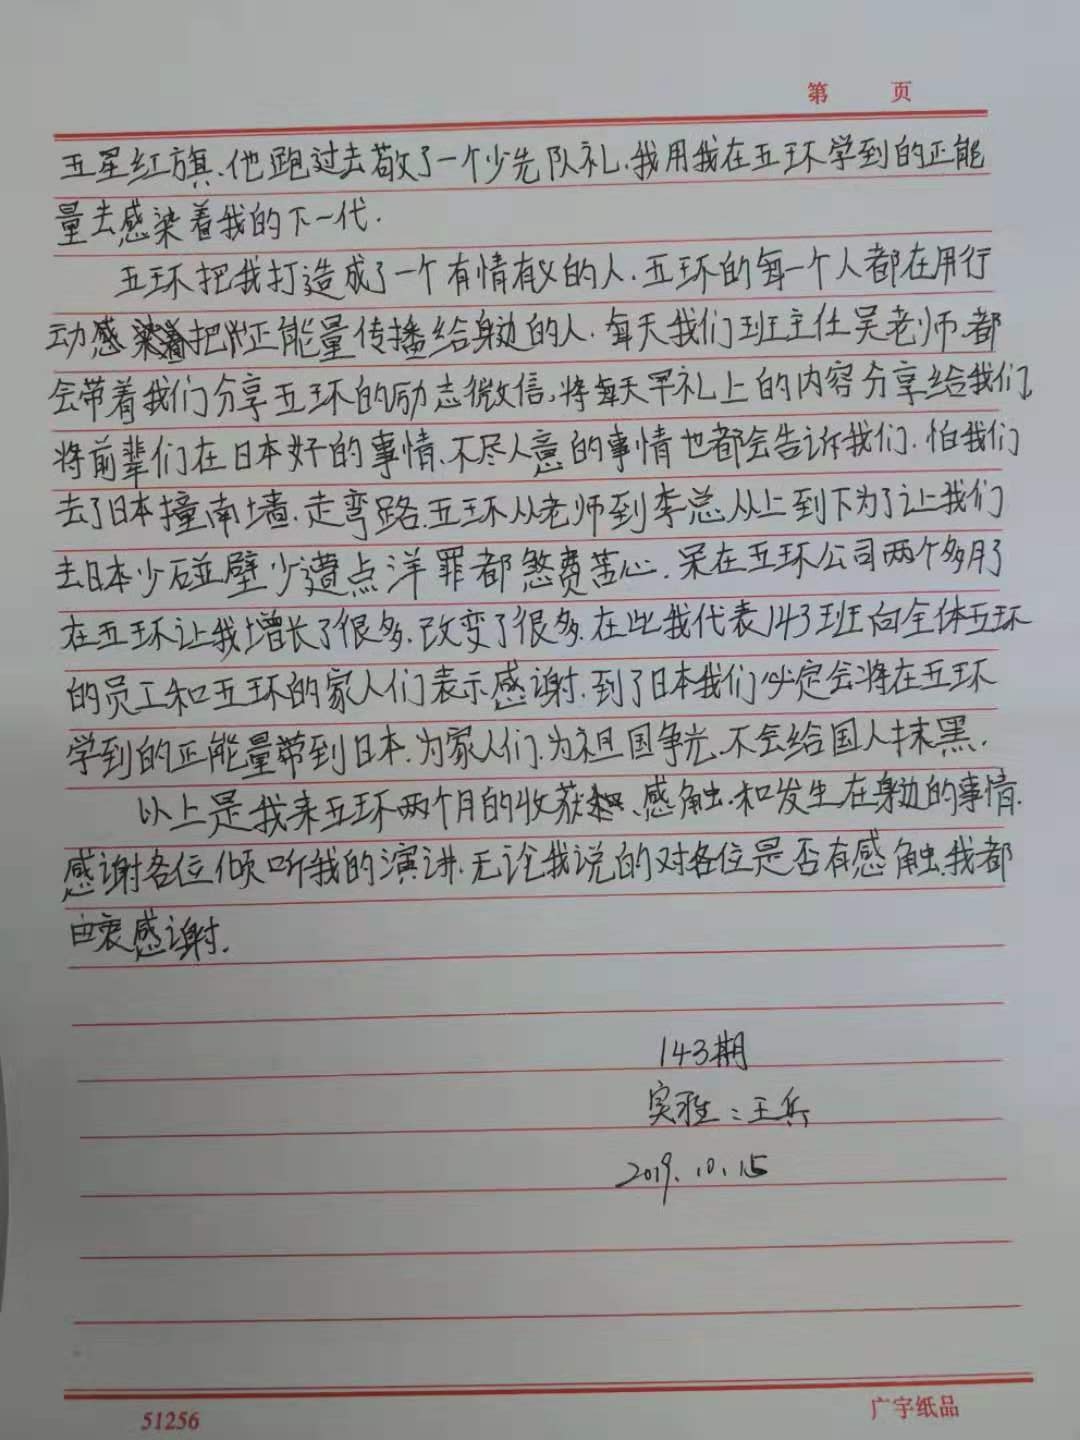 第 页
五星红旗、他跑过去敬了一个少先队礼、我用我在五环学到的正能
量去感染着我的下一代.
五环把我打造成了一个有情有义的人.五环的每一个人都在用行
动感染着把正能量传播给身边的人.每天我们班主任吴老师.都
会带着我们分享五环的励志微信,将每天早礼上的内容分享给我们,
将前辈们在日本好的事情、不尽人意的事情也都会告诉我们.怕我们
去了日本撞南墙、走弯路.五环从老师到李总从上到下为了让我们
去日本少碰壁少遭点洋罪都煞费苦心.呆在五环公司两个多月了
在五环让我增长了很多、改变了很多.在此我代表143班向全体五环
的员工和五环的家人们表示感谢.到了日本我们必定会将在五环
学到的正能量带到日本.为家人们.为祖国争光、不会给国人抹黑.
以上是我来五环两个月的收获、感触.和发生在身边的事情.
感谢各位倾听我的演讲.无论我说的对各位是否有感触.我都
由衷感谢.
143期
实雅:王兵
2019.10.15
51256
广宇纸品